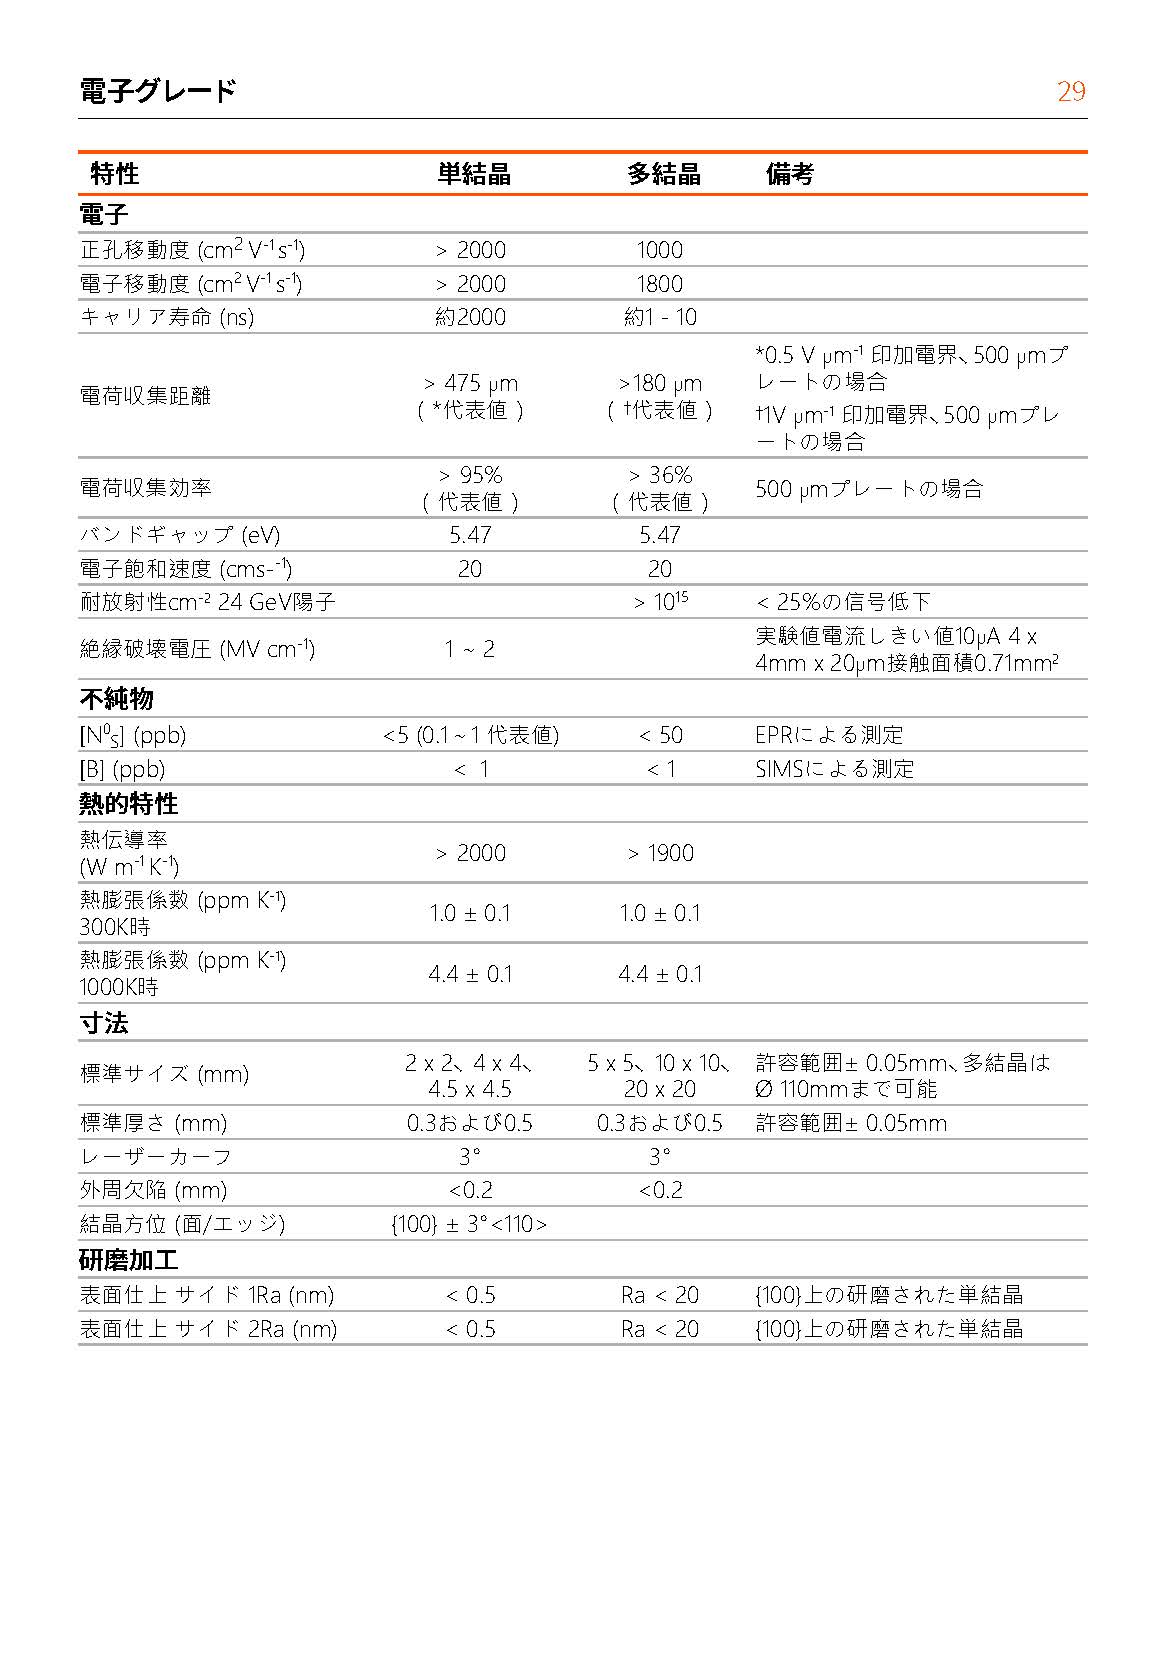 電子グレード 29
特性 単結晶 多結晶 備考
電子
正孔移動度 (cm² V⁻¹ s⁻¹) > 2000 1000
電子移動度 (cm² V⁻¹ s⁻¹) > 2000 1800
キャリア寿命 (ns) 約2000 約1 - 10
電荷収集距離 > 475 μm ( *代表値 ) >180 μm ( †代表値 )
*0.5 V μm⁻¹ 印加電界、500 μmプ
レートの場合
†1V μm⁻¹ 印加電界、500 μmプレ
ートの場合
電荷収集効率 > 95% ( 代表値 ) > 36% ( 代表値 ) 500 μmプレートの場合
バンドギャップ (eV) 5.47 5.47
電子飽和速度 (cms-⁻¹) 20 20
耐放射性cm⁻² 24 GeV陽子 > 10¹⁵ < 25%の信号低下
絶縁破壊電圧 (MV cm⁻¹) 1 ~ 2
実験値電流しきい値10μA 4 x
4mm x 20μm接触面積0.71mm²
不純物
[N⁰ₛ] (ppb) <5 (0.1 ~ 1 代表値) < 50 EPRによる測定
[B] (ppb) < 1 < 1 SIMSによる測定
熱的特性
熱伝導率
(W m⁻¹ K⁻¹) > 2000 > 1900
熱膨張係数 (ppm K⁻¹)
300K時 1.0 ± 0.1 1.0 ± 0.1
熱膨張係数 (ppm K⁻¹)
1000K時 4.4 ± 0.1 4.4 ± 0.1
寸法
標準サイズ (mm)
2 x 2、4 x 4、
4.5 x 4.5
5 x 5、10 x 10、
20 x 20
許容範囲± 0.05mm、多結晶は
Ø 110mmまで可能
標準厚さ (mm) 0.3および0.5 0.3および0.5 許容範囲± 0.05mm
レーザーカーフ 3° 3°
外周欠陥 (mm) <0.2 <0.2
結晶方位 (面/エッジ) {100} ± 3°<110>
研磨加工
表面仕上 サイド 1Ra (nm) < 0.5 Ra < 20 {100}上の研磨された単結晶
表面仕上 サイド 2Ra (nm) < 0.5 Ra < 20 {100}上の研磨された単結晶